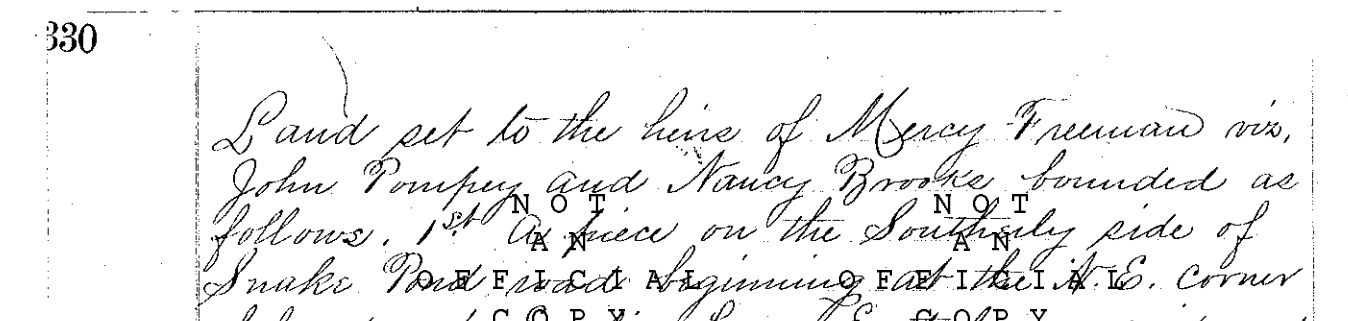 330
Land set to the heirs of Mercy Freeman viz,
John Pompey and Nancy Brooks bounded as
follows. 1st. A piece on the Southerly side of
Snake Pond road beginning at the N.E. corner
NOT NOT
AN AN
OFFICIAL OFFICIAL
COPY COPY